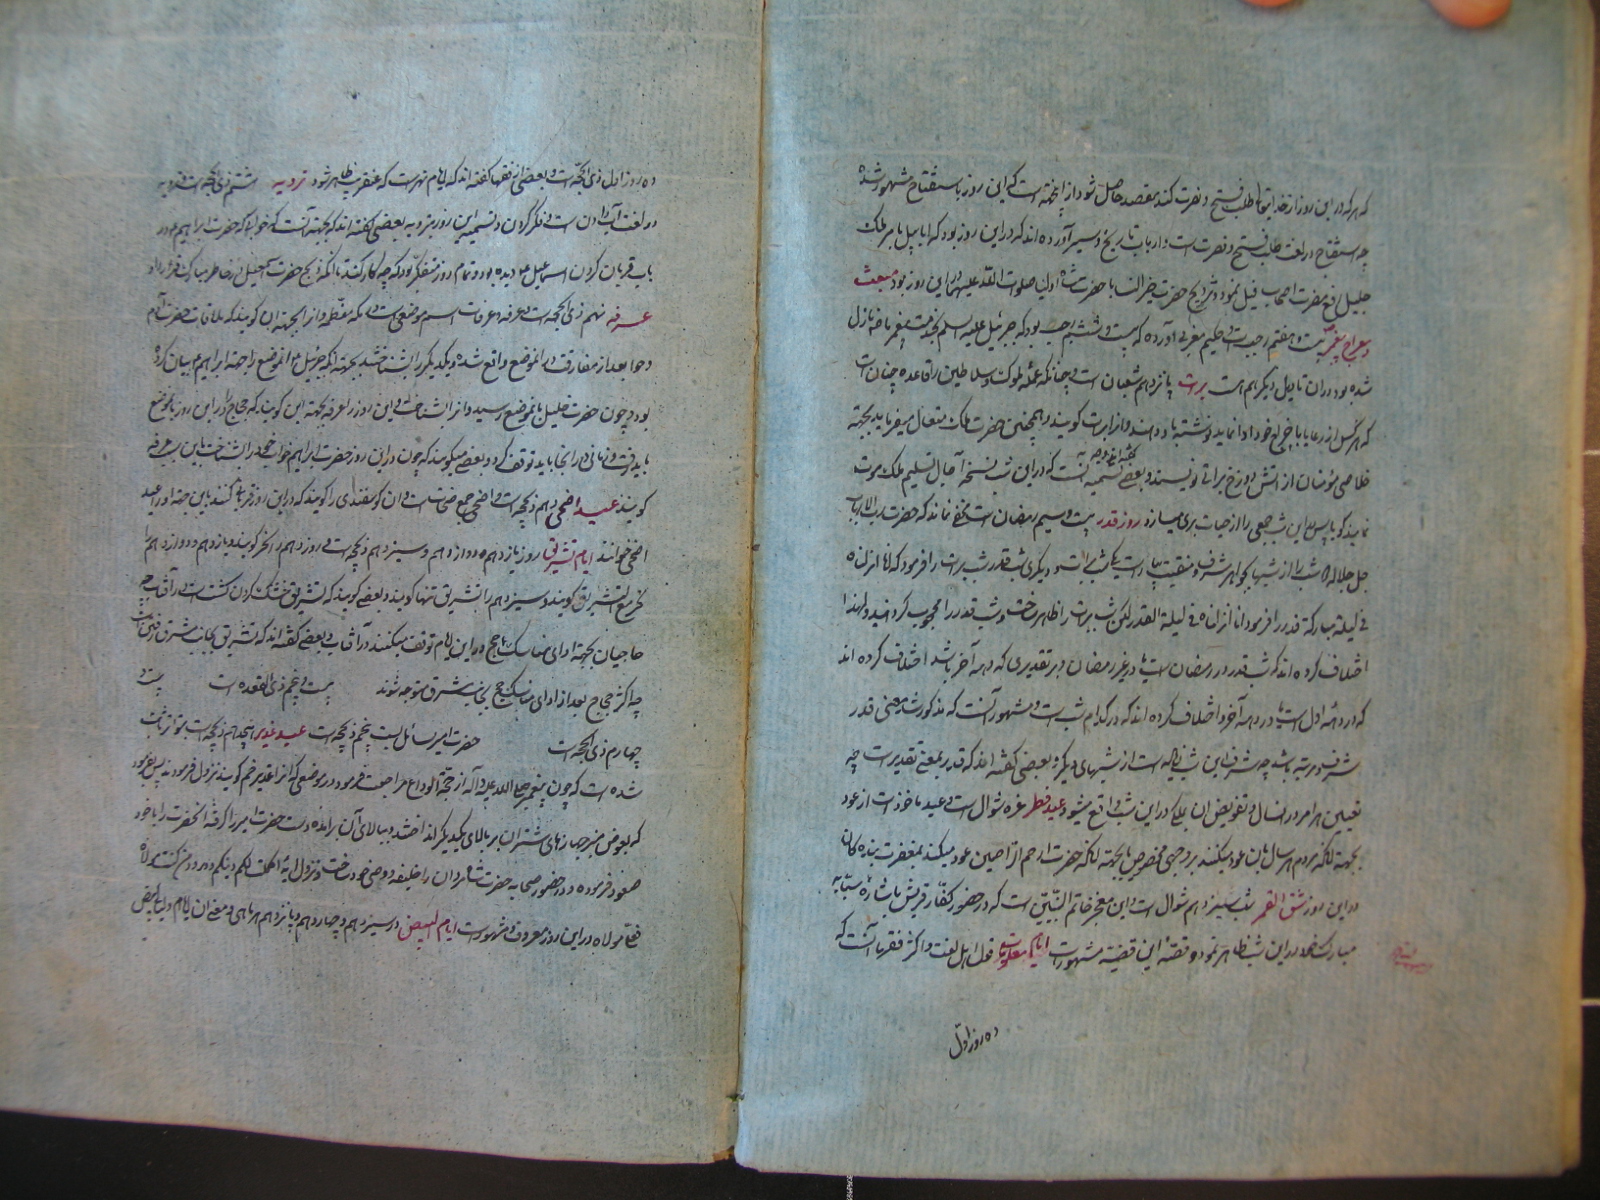 که هر که در این روز از خدایتعالی طلب فتح و نصرت کند مقصد حاصل شود از اینجهته است که این روز باستفتاح مشهور شده
چه استفتاح در لغت طلب فتح و نصرت است و ارباب تاریخ و سیر آورده اند که در این روز بود که ابابیل بامر ملک
جلیل دفع مضرت اصحاب فیل نمود و تزویج حضرت خیر النسا با حضرت شاه اولیا صلوات الله علیهما در این روز بود مبعث
و معراج پیغمبر بیست و هفتم رجب است و حلیم مغربی آورده که بیست و ششم رجب بود که جبرئیل علیه السلم بخدمت پیغمبر ما نازل
شده بود و در ان تاویل دیگر هم هست برات پانزدهم شعبان است و چنانکه عمله ملوک و سلاطین را قاعده چنان است
که هر کس از رعایا باج و خراج خود ادا نماید نوشته باو دهند و انرا برات کویند و همچنین حضرت ملک متعال میفرماید بجهته
خلاصی مؤمنان از آتش دوزخ براتی نویسند و بعضی وجه تسمیه آنست که در این شب نسخه آجال تسلیم ملک موت
نمایند کویا پس این شب جمعی را از حیات بری میسازد روز قدر بیست و سیم رمضان است مخفی نماند که حضرت رب الارباب
جل جلاله دو شب را از شبها بجواهر شرف و منقبت بیاراست یکی شب برات و دیگری شب قدر شب برات را فرمود که انا انزلناه
فی لیلة مبارکة قدر را فرمود انا انزلناه فی لیلة القدر لیکن شب برات را ظاهر ساخت و شب قدر را محجوب کردانید و لهذا
اختلاف کرده اند که شب قدر در رمضان است یا در غیر رمضان و بر تقدیری که در دهه آخر باشد اختلاف کرده اند
که در دهه اول است یا در دهه آخر و اختلاف کرده اند که در کدام شب است و مشهور آنست که مذکور شد و معنی قدر
شرف و مرتبه باشد چه شرف این شب زیاده است از شبهای دیگر و بعضی کفته اند که قدر بمعنی تقدیر است چه
تعیین هر امر در سال و تفویض ان بملایکه در این شب واقع میشود عید فطر غره شوال است و عید ماخوذ است از عود
بجهته آنکه مردم هر سال بان عود میکنند بر وجهی مخصوص یا بجهته آنکه حضرت ارحم الراحمین عود میکند بمغفرت بنده کان
در این روز شق القمر شب سیزدهم شوال است این معجز خاتم النبیین است که در حضور کفار قریش باشاره سبابه
مبارکش ماه در این شب ظاهر نمود و قصهٔ این قضیه مشهور است ایام معلومات قول اهل لغت و اکثر فقها آنست که
ده روز اول
ده روز اول ذی الحجه است و بعضی از فقها کفته اند که ایام نحر است که عنقریب ظاهر شود ترویه هشتم ذی الحجه است و ترویه
در لغت آب دادن است و فکر کردن و تسمیه این روز بترویه بعضی کفته اند که بجهته آنست که خوابی که حضرت ابراهیم در
باب قربان کردن اسماعیل دیده بود و تمام روز متفکر بود که چه کار کند تا آنکه ذبح حضرت اسمعیل در خاطر مبارکش قرار داد
عرفه نهم ذی الحجه است و عرفه و عرفات اسم موضعی است در مکه معظمه و انرا بجهته ان کویند که ملاقات حضرت آدم
و حوا بعد از مفارقت در انموضع واقع شده و یکدیگر را بشناختند یا بجهته آنکه جبرئیل انموضع را جهته ابراهیم بیان کرده
بود و چون حضرت خلیل بانموضع رسید و انرا بشناخت و این روز را عرفه بجهته این کویند که حجاج را در این روز بانموضع
باید رفت و زمانی در انجا باید توقف کرد و بعضی میکویند که چون در این روز حضرت ابراهیم خواب خود را شناخت باین سبب عرفه
کویند عید اضحی دهم ذیحجه است و اضحی جمع اضحات است و ان کوسفندی را کویند که در این روز قربان کنند باین جهته اورا عید
اضحی خوانند ایام تشریق روز یازدهم و دوازدهم و سیزدهم ذیحجه است و روز دهم را نحر کویند و یازدهم و دوازدهم را
نحر مع التشریق کویند و سیزدهم را تشریق تنها کویند و بعضی کویند که تشریق خشک کردن کوشت است در آفتاب چه
حاجیان بجهته ادای مناسک حج در این ایام توقف میکنند در آفتاب و بعضی کفته اند که تشریق بجانب مشرق رفتن است
چه اکثر حجاج بعد از ادای مناسک حج بجانب مشرق متوجه شوند بیست و پنجم ذی القعده است بیست و
چهارم ذی الحجه است حضرت امیر سائل بیست پنجم ذیحجه است عید غدیر هیجدهم ذیحجه است بتواتر ثابت
شده است که چون پیغمبر صلی الله علیه و آله از حجة الوداع مراجعت فرمود در موضعی که انرا غدیر خم کویند نزول فرمودند پس امر بود
که بعوض منبر جهازهای شتران بر بالای یکدیگر انداختند و ببالای آن برآمده دست حضرت امیر را کرفته آنحضرت را با خود
صعود فرموده و در حضور صحابه حضرت شاه مردان را خلیفه و وصی خود ساخت و نزول آیه اکملت لکم دینکم و من کنت مولاه
فعلی مولاه در این روز معروف و مشهور است ایام البیض در سیزدهم و چهاردهم و پانزدهم هر ماهی و معنی ان ایام لیالی بیض